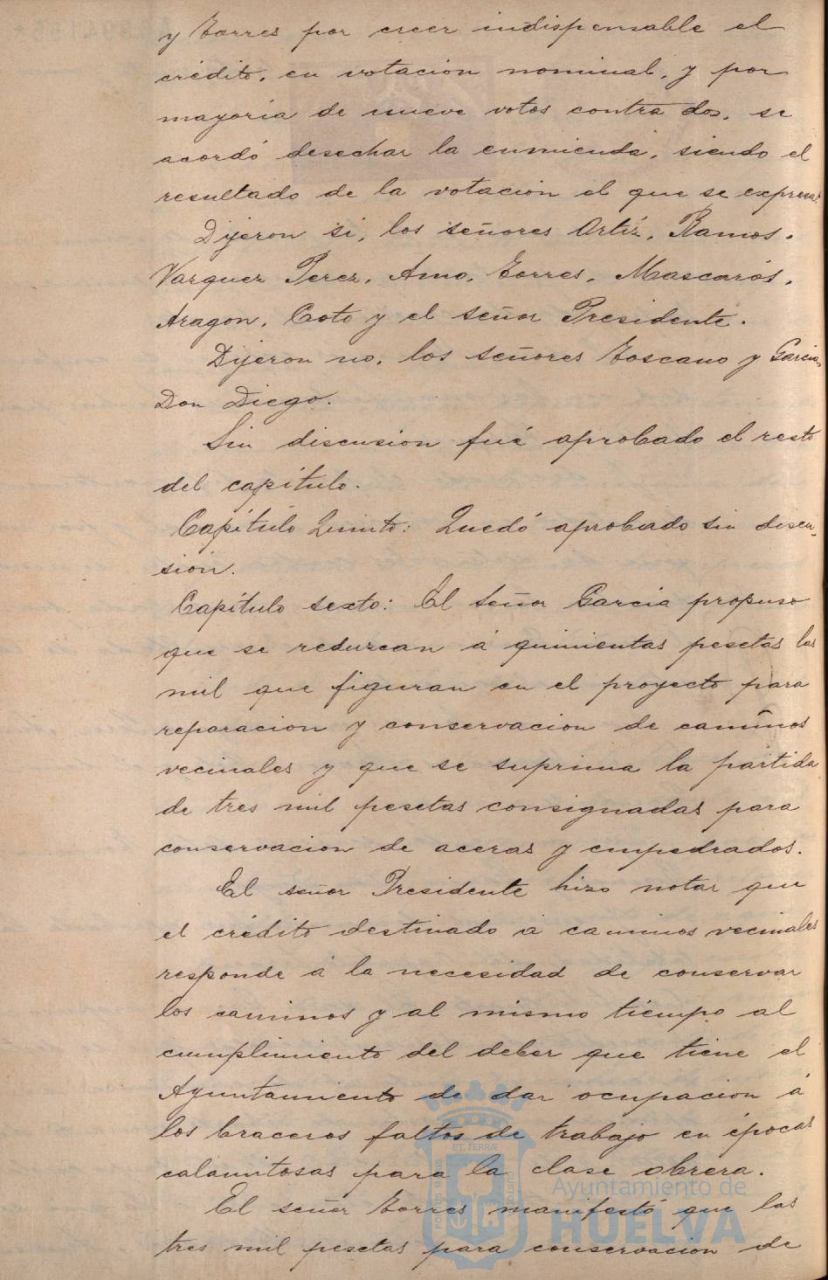 y Torres por creer indispensable el
crédito, en votación nominal, y por
mayoría de nueve votos contra dos, se
acordó desechar la enmienda, siendo el
resultado de la votación el que se expresa:
Dijeron si, los señores Ortíz, Ramos,
Vazquez Perez, Amo, Torres, Mascarós,
Aragon, Coto y el señor Presidente.
Dijeron no, los señores Toscano y Garcia,
Don Diego.
Sin discusion fué aprobado el resto
del capítulo.
Capítulo Quinto: Quedó aprobado sin discu-
sión.
Capítulo sexto: El señor Garcia propuso
que se reduzcan á quinientas pesetas las
mil que figuran en el proyecto para
reparacion y conservacion de caminos
vecinales y que se suprima la partida
de tres mil pesetas consignadas para
conservacion de aceras y empedrados.
El señor Presidente hizo notar que
el crédito destinado á caminos vecinales
responde á la necesidad de conservar
los caminos y al mismo tiempo al
cumplimiento del deber que tiene el
Ayuntamiento de dar ocupacion á
los braceros faltos de trabajo en épocas
calamitosas para la clase obrera.
El señor Torres manifestó que las
tres mil pesetas para conservacion de
Ayuntamiento de
HUELVA